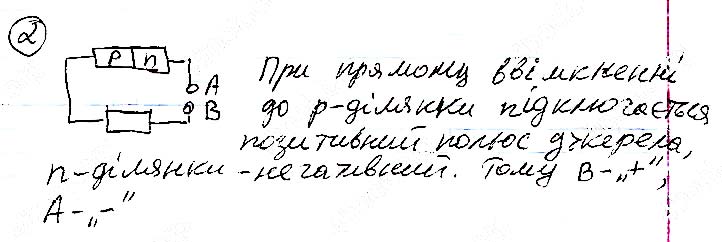 2
p n
A
При прямому ввімкненні
B
до p-ділянки підключається
позитивний полюс джерела,
n-ділянки - негативний. Тому B - „+”,
A - „-”